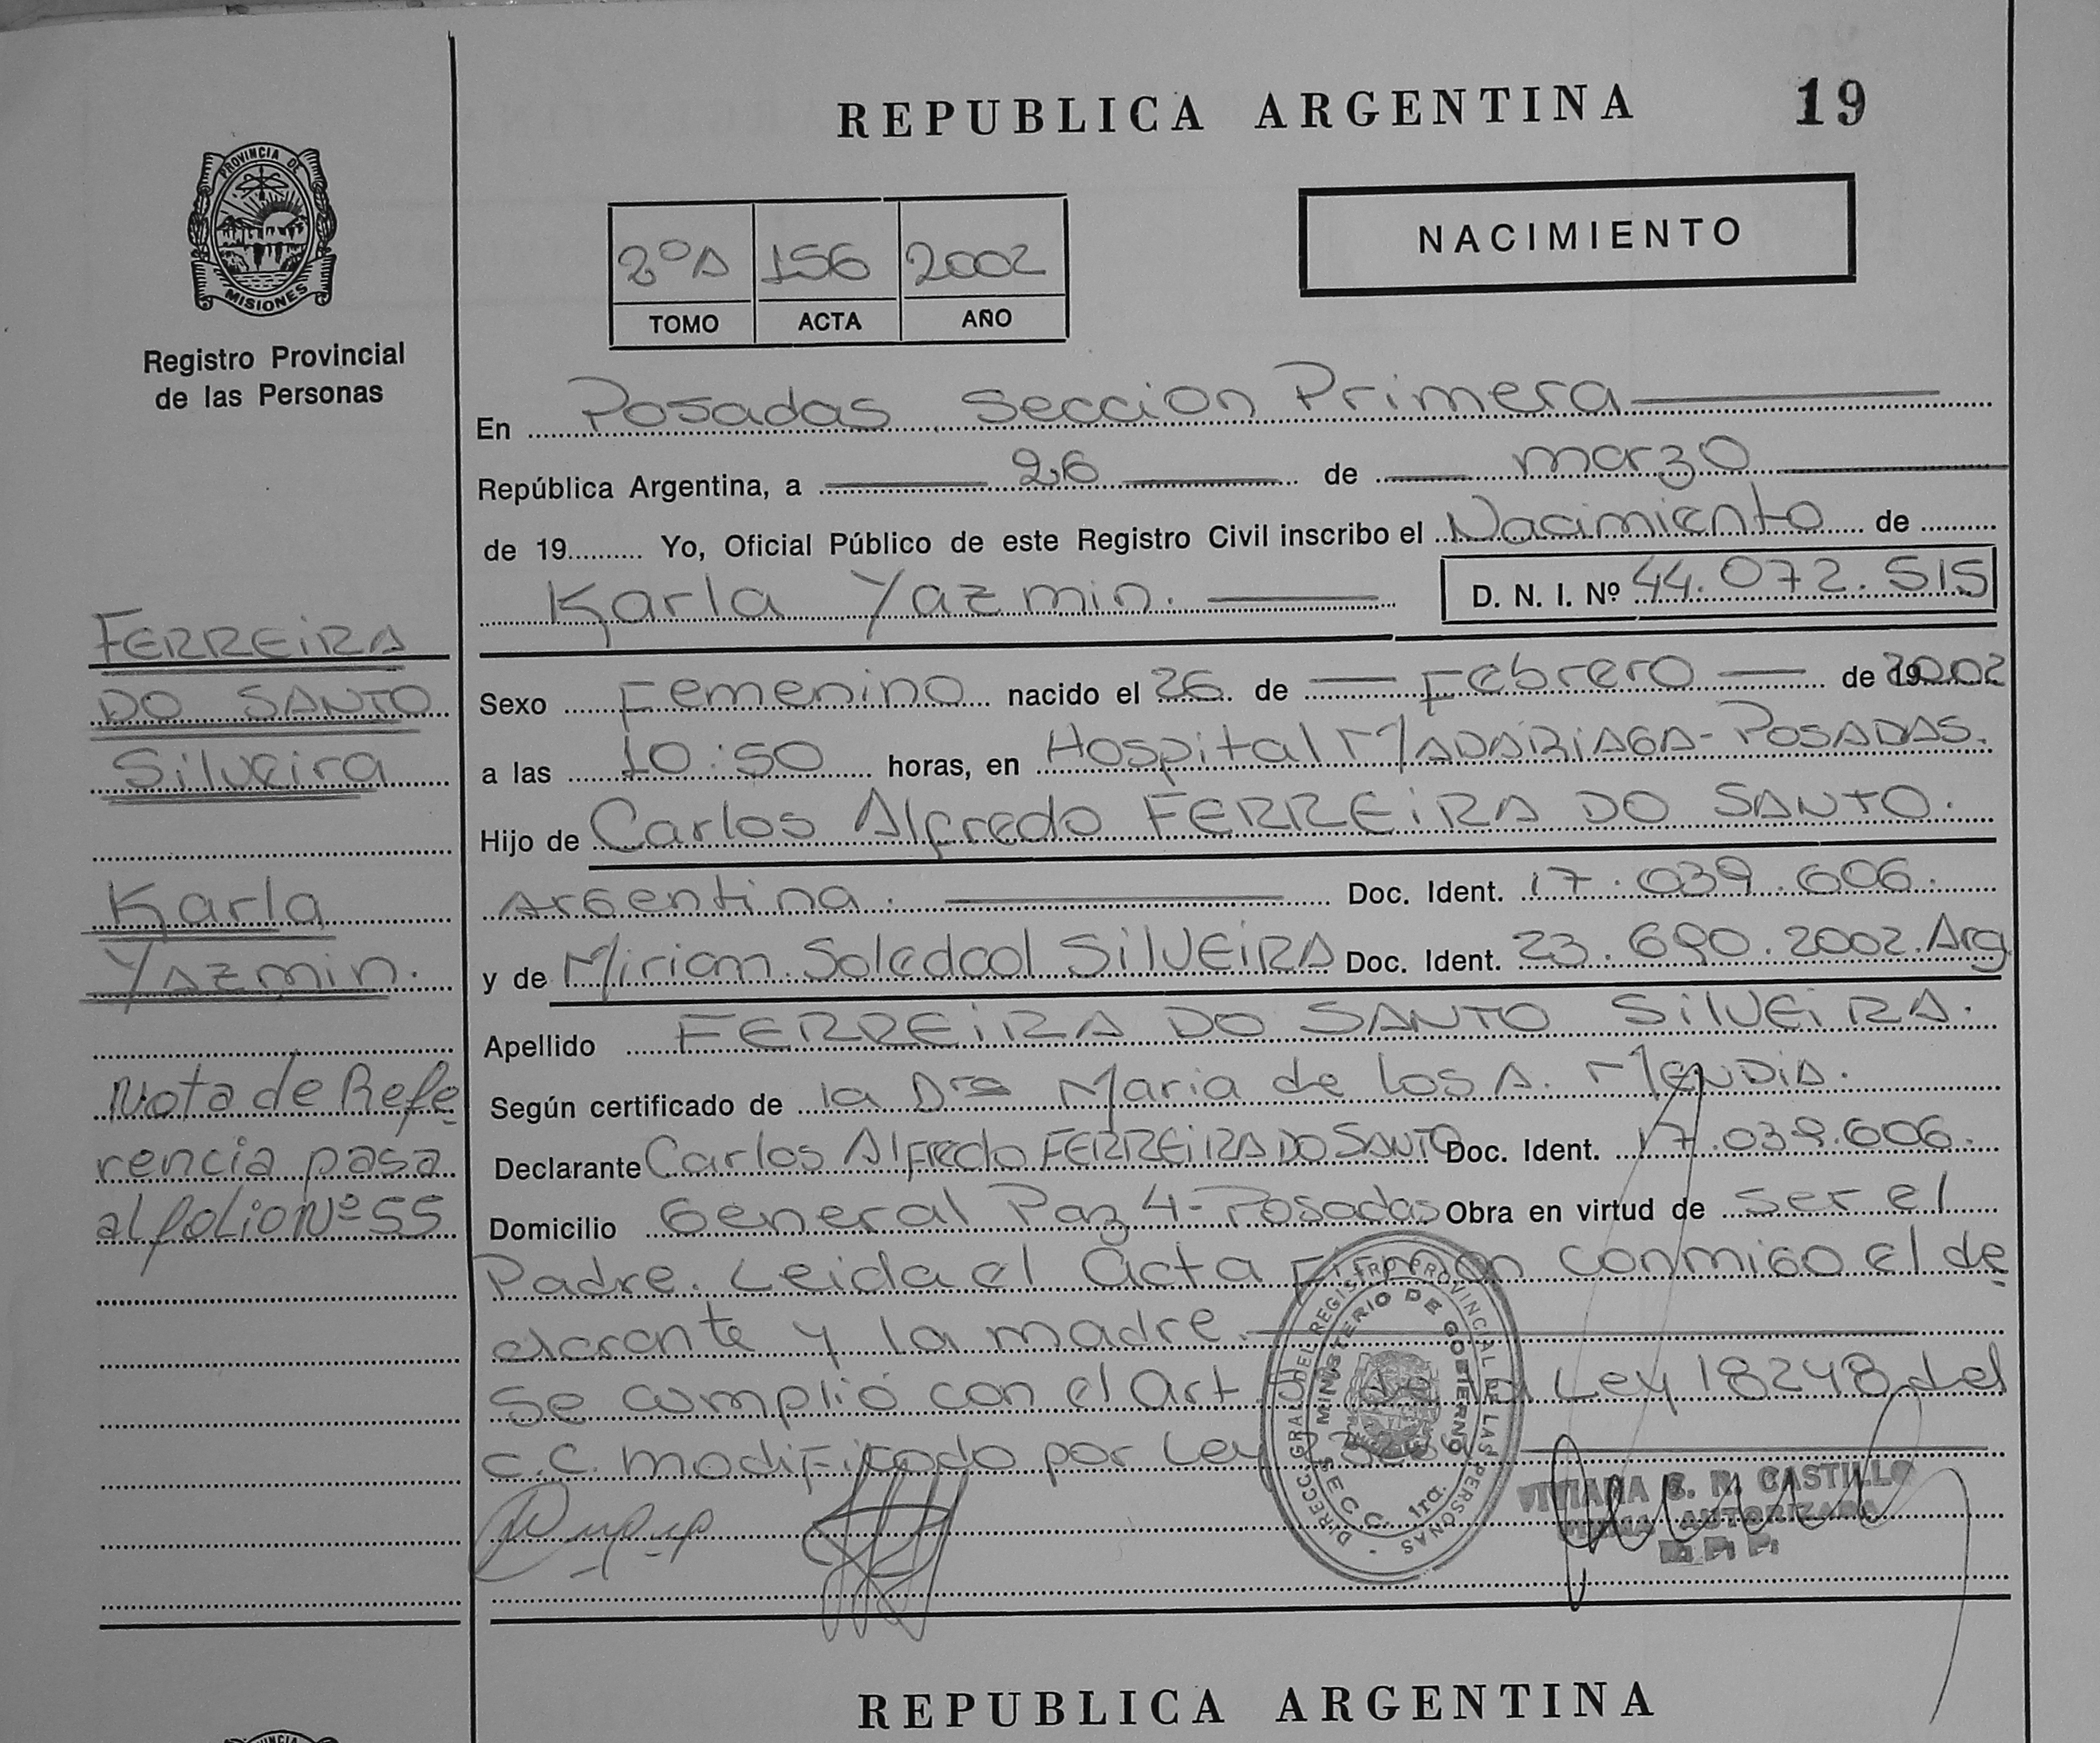 REPUBLICA ARGENTINA 19
PROVINCIA DE
MISIONES
Registro Provincial
de las Personas
2º A 156 2002
TOMO ACTA AÑO
NACIMIENTO
En Posadas Seccion Primera
República Argentina, a 26 de marzo
de 19 Yo, Oficial Público de este Registro Civil inscribo el Nacimiento de
Karla Yazmin. D. N. I. Nº 44.072.515
Sexo Femenino nacido el 26 de Febrero de 2002
a las 10:50 horas, en Hospital MADARIAGA-POSADAS.
Hijo de Carlos Alfredo FERREIRA DO SANTO.
Argentina. Doc. Ident. 17.039.606.
y de Miriam Soledad SILVEIRA Doc. Ident. 23.690.2002. Arg
Apellido FERREIRA DO SANTO SILVEIRA.
Según certificado de la Dra Maria de los A. MENDIA.
Declarante Carlos Alfredo FERREIRA DO SANTO Doc. Ident. 17.039.606.
Domicilio General Paz 4-Posadas Obra en virtud de ser el
Padre. Leida el Acta Firman conmigo el de
clarante y la madre.
Se cumplió con el Art Ley 18248 del
C.C. modificado por Ley
FERREIRA
DO SANTO
Silveira
Karla
Yazmin.
Nota de Refe
rencia pasa
al folio Nº 55
DIRECC. GRAL. DEL REGISTRO PROVINCIAL DE LAS PERSONAS
MINISTERIO DE GOBIERNO
SECC. 1ra.
VIVIANA CASTILLO
FIRMA AUTORIZADA
REPUBLICA ARGENTINA